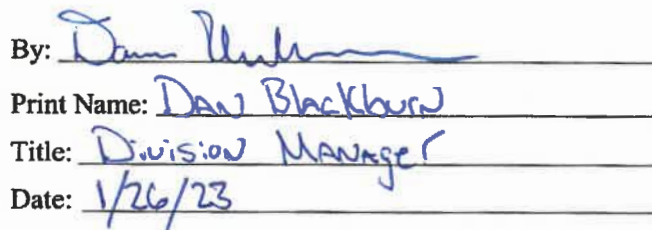 By:
Print Name: DAN Blackburn
Title: Division Manager
Date: 1/26/23